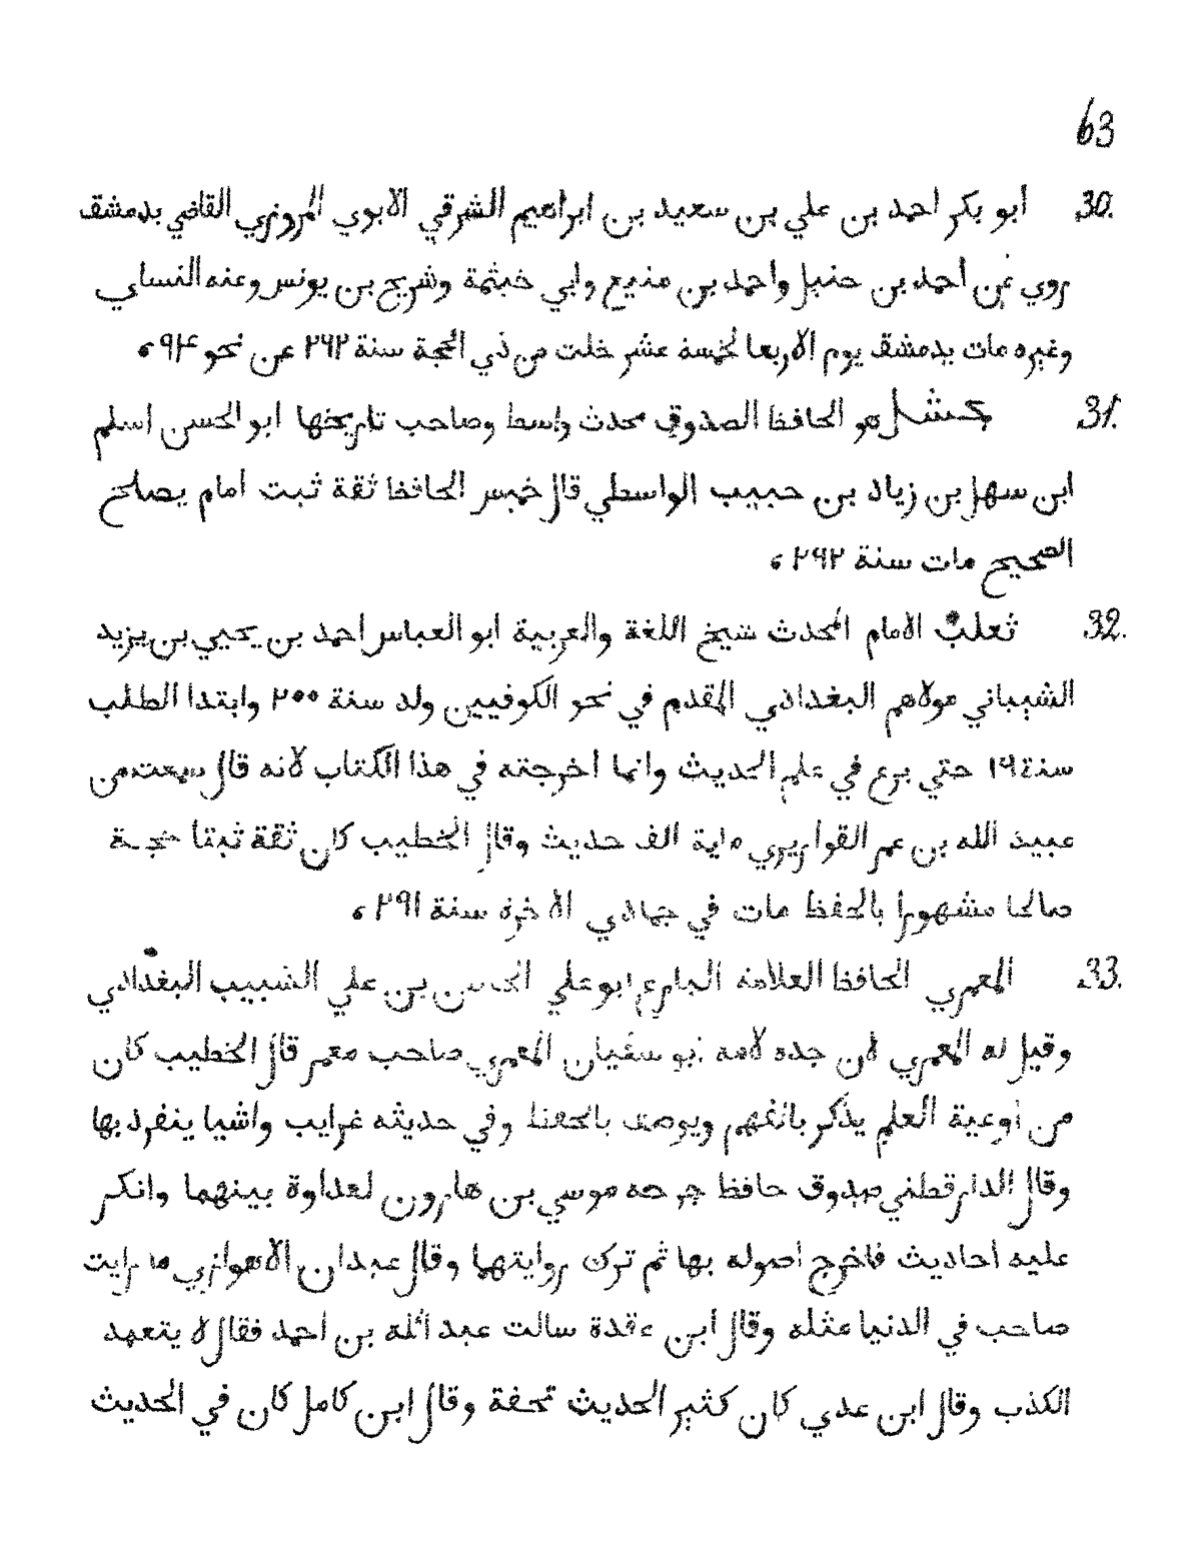 63
30. ابو بكر احمد بن علي بن سعيد بن ابراهيم الشرقي الابوي المروزي القاضي بدمشق
روي عن احمد بن حنبل واحمد بن منيع وابي خيثمة وشريح بن يونس وعنه النساي
وغيره مات بدمشق يوم الاربعا لخمسة عشر خلت من ذي الحجة سنة ٢٩٢ عن نحو ٩٤
31. بحشل هو الحافظ الصدوق محدث واسط وصاحب تاريخها ابو الحسن اسلم
ابن سهل بن زياد بن حبيب الواسطي قال خميس الحافظ ثقة ثبت امام يصلح
الصحيح مات سنة ٢٩٢
32. ثعلب الامام المحدث شيخ اللغة والعربية ابو العباس احمد بن يحيي بن يزيد
الشيباني مولاهم البغدادي المقدم في نحو الكوفيين ولد سنة ٢٠٠ وابتدا الطلب
سنة ١٩٤ حتي برع في علم الحديث وانما اخرجته في هذا الكتاب لانه قال سمعت من
عبيد الله بن عمر القواريري ماية الف حديث وقال الخطيب كان ثقة ثبتا حجة
صالحا مشهورا بالحفظ مات في جمادي الاخرة سنة ٢٩١
33. المعمري الحافظ العلامة البارع ابو علي الحسن بن علي الشبيب البغدادي
وقيل له المعمري لان جده لامه ابو سفيان المعمري صاحب معمر قال الخطيب كان
من اوعية العلم يذكر بالفهم ويوصف بالحفظ وفي حديثه غرايب واشيا ينفرد بها
وقال الدارقطني صدوق حافظ جرحه موسي بن هارون لعداوة بينهما وانكر
عليه احاديث فاخرج اصوله بها ثم ترك روايتها وقال عبدان الاهوازي ما رايت
صاحب في الدنيا مثله وقال ابن عقدة سالت عبد الله بن احمد فقال لا يتعمد
الكذب وقال ابن عدي كان كثير الحديث تحفة وقال ابن كامل كان في الحديث